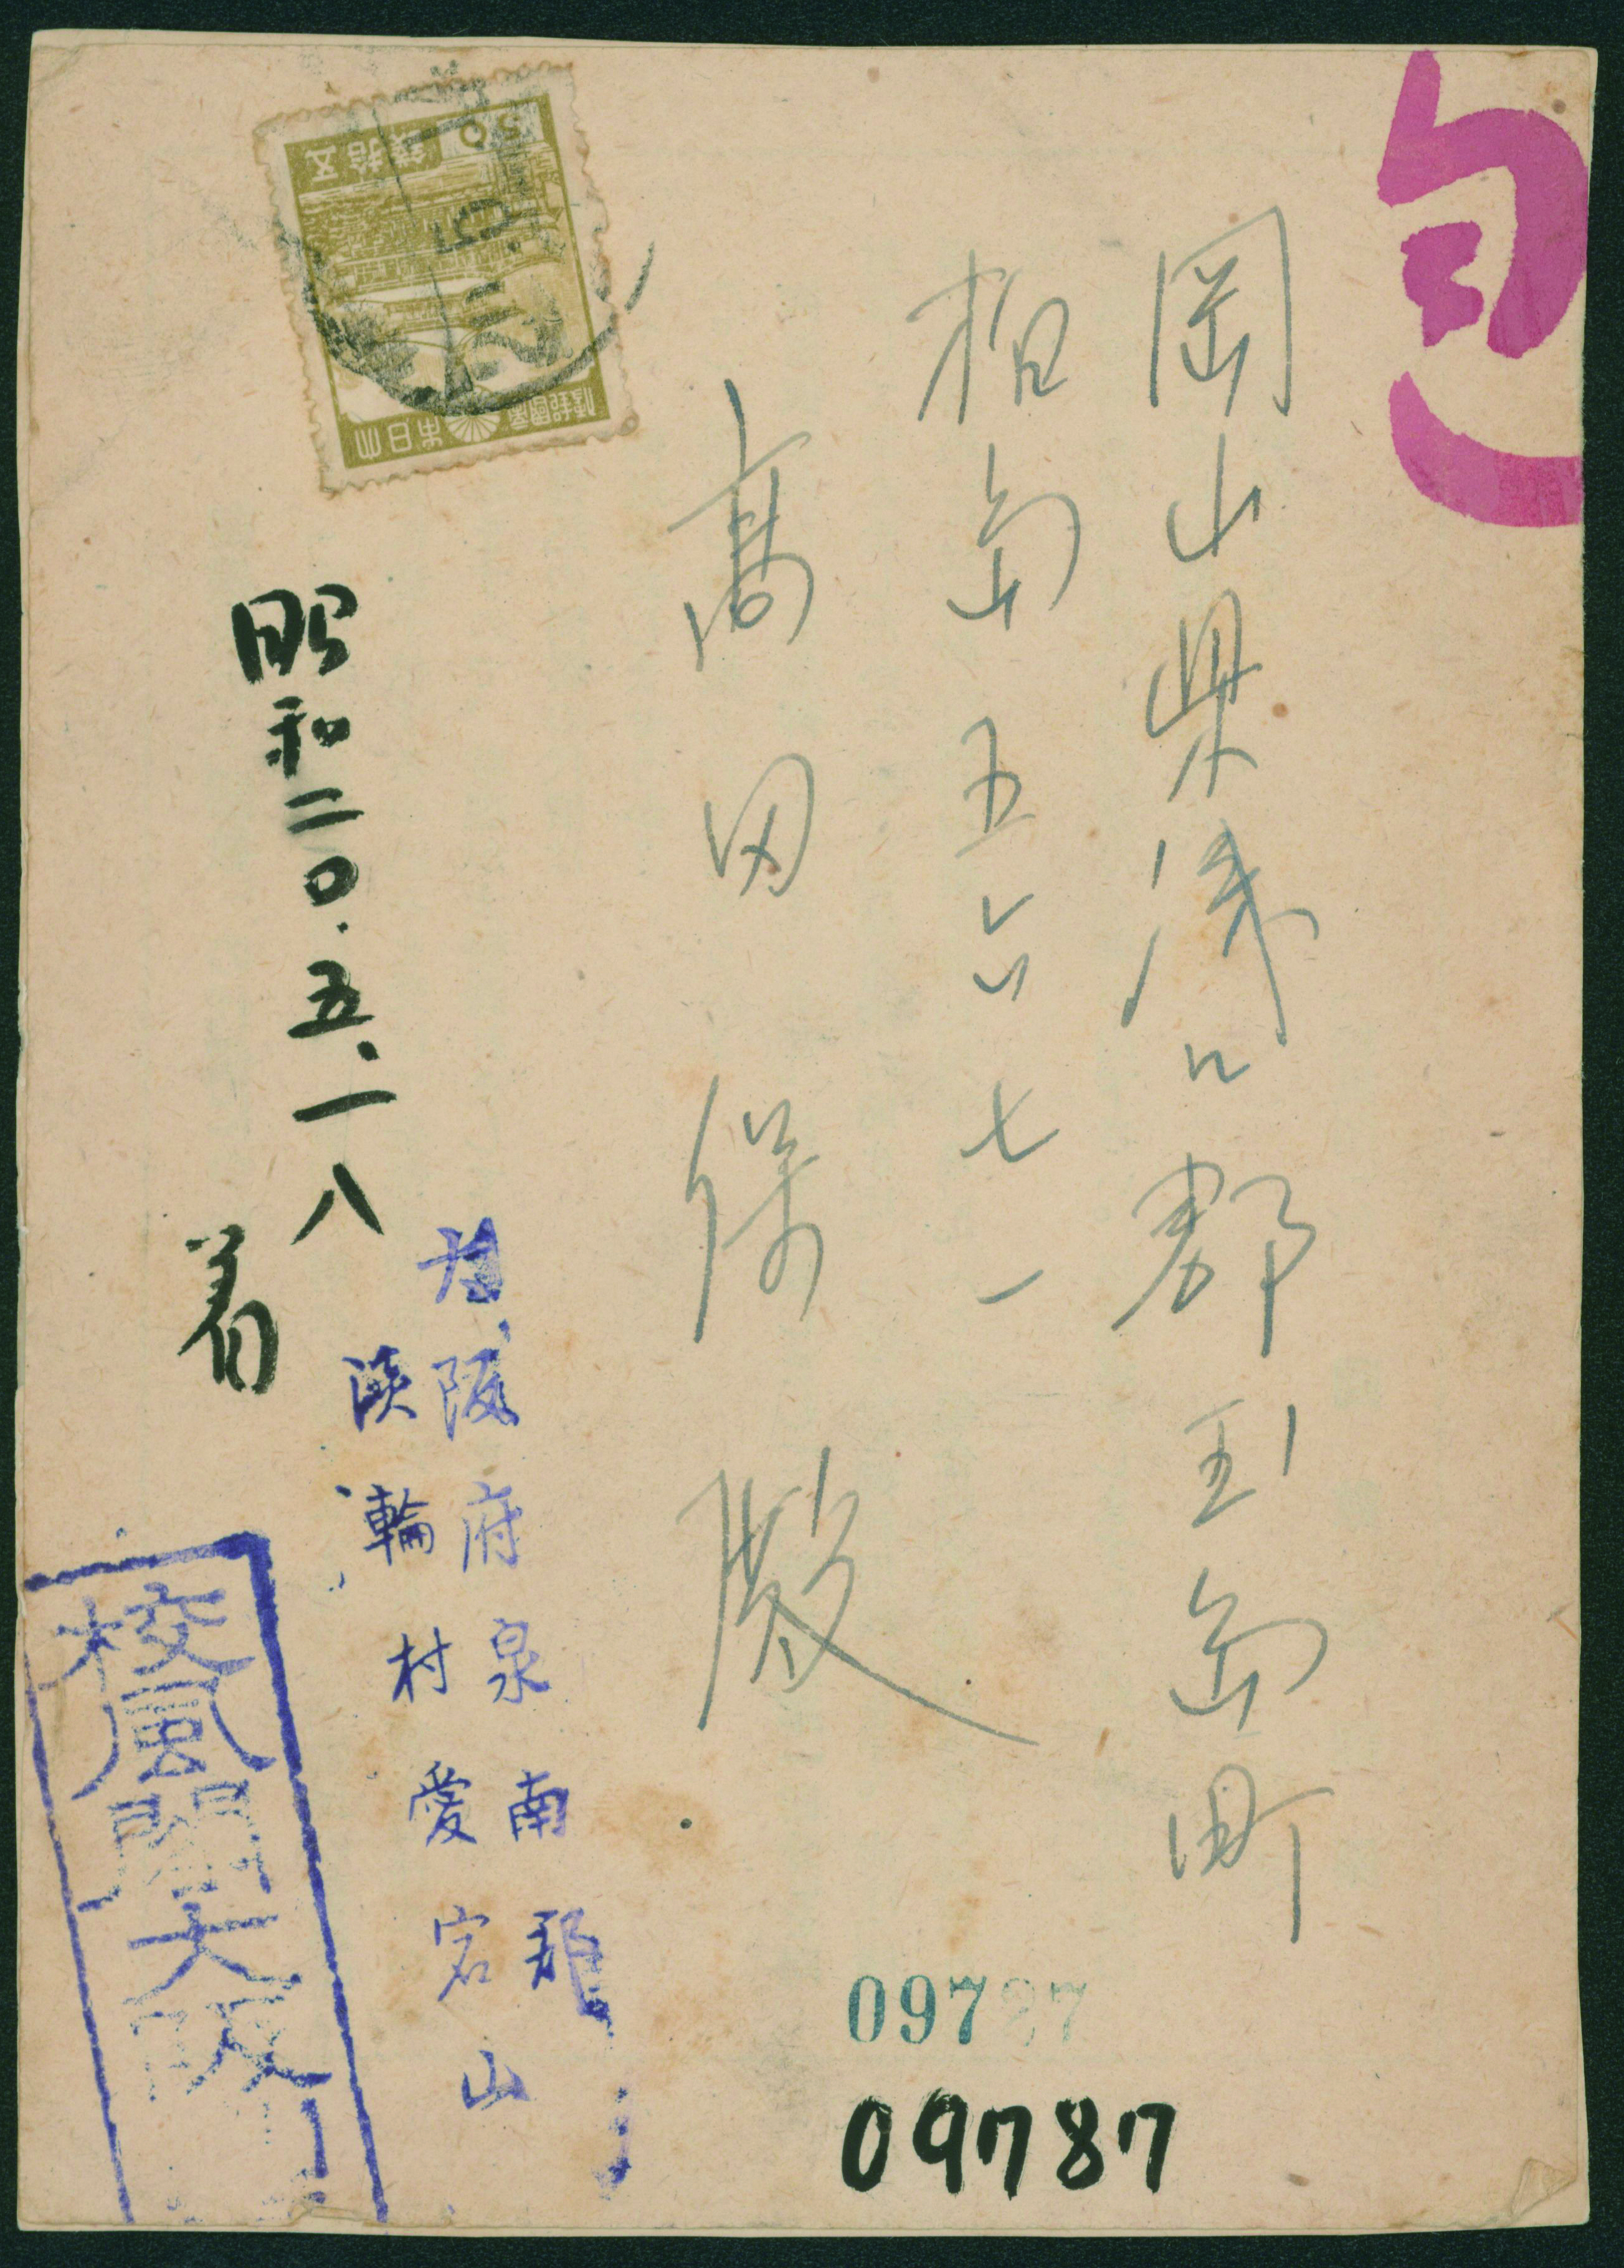 岡山県浅口郡玉島町
柏島五六七一
高田保殿
昭和二〇.五.一八
着
大阪府泉南郡
淡輪村愛宕山
大日本帝國郵便
五拾錢
50
09787
09787